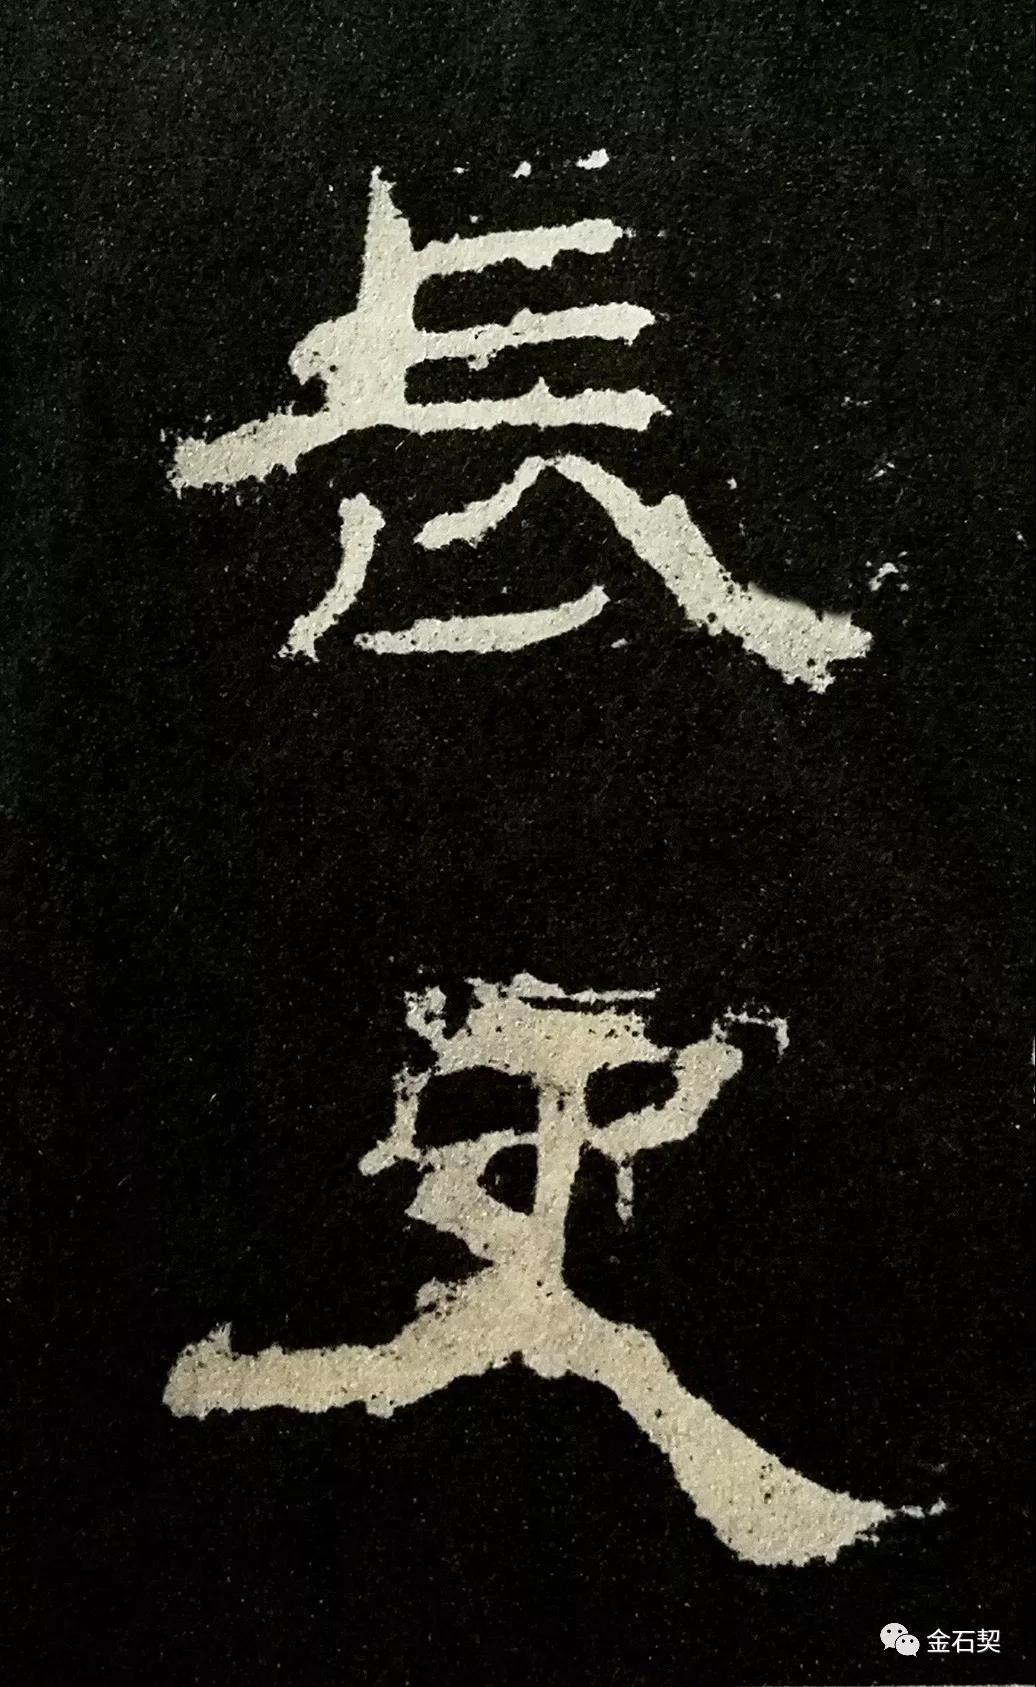 長
史
金石契